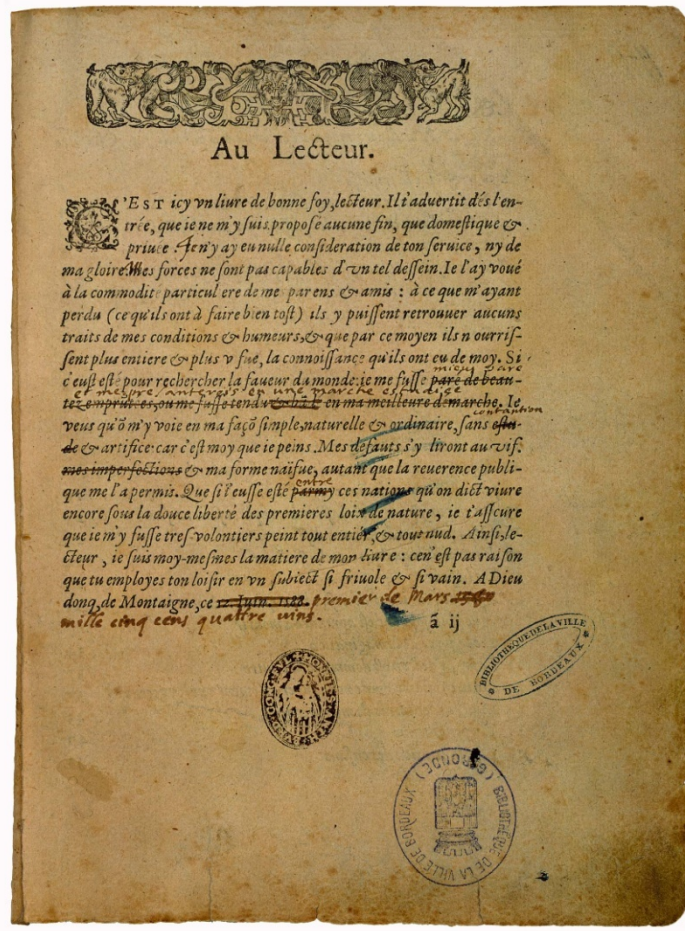 Au Lecteur.
C'EST icy vn liure de bonne foy, lecteur. Il t'aduertit dés l'en-
trée, que ie ne m'y suis proposé aucune fin, que domestique &
priuée. Je n'y ay eu nulle consideration de ton seruice, ny de
ma gloire. Mes forces ne sont pas capables d'vn tel dessein. Ie l'ay voué
à la commodité particuliere de mes parens & amis : à ce que m'ayant
perdu (ce qu'ils ont à faire bien tost) ils y puissent retrouuer aucuns
traits de mes conditions & humeurs, & que par ce moyen ils nourris-
sent plus entiere & plus vifue, la connoissance qu'ils ont eu de moy. Si
mieus paré
c'eust esté pour rechercher la faueur du monde: je me fusse paré de beau-
tez empruntées, ou me fusse tendu & bādé en ma meilleure démarche. Ie
contantion
veus qu'ō m'y voie en ma façō simple, naturelle & ordinaire, sans estu-
de & artifice: car c'est moy que ie peins. Mes defauts s'y liront au vif.
mes imperfections & ma forme naïfue, autant que la reuerence publi-
entre
que me l'a permis. Que si i'eusse esté parmy ces nations qu'on dict viure
encore sous la douce liberté des premieres loix de nature, ie t'asseure
que ie m'y fusse tres-volontiers peint tout entier, & tout nud. Ainsi, le-
cteur, ie suis moy-mesmes la matiere de mon liure : ce n'est pas raison
que tu employes ton loisir en vn subiect si friuole & si vain. A Dieu
donq, de Montaigne, ce 12. Iuin. 1588. premier de Mars 1580
mille cinq cens quattre vins.
ã ij
BIBLIOTHEQUE DE LA VILLE
DE BORDEAUX
BIBLIOTHÈQUE DE LA VILLE DE BORDEAUX (GIRONDE)